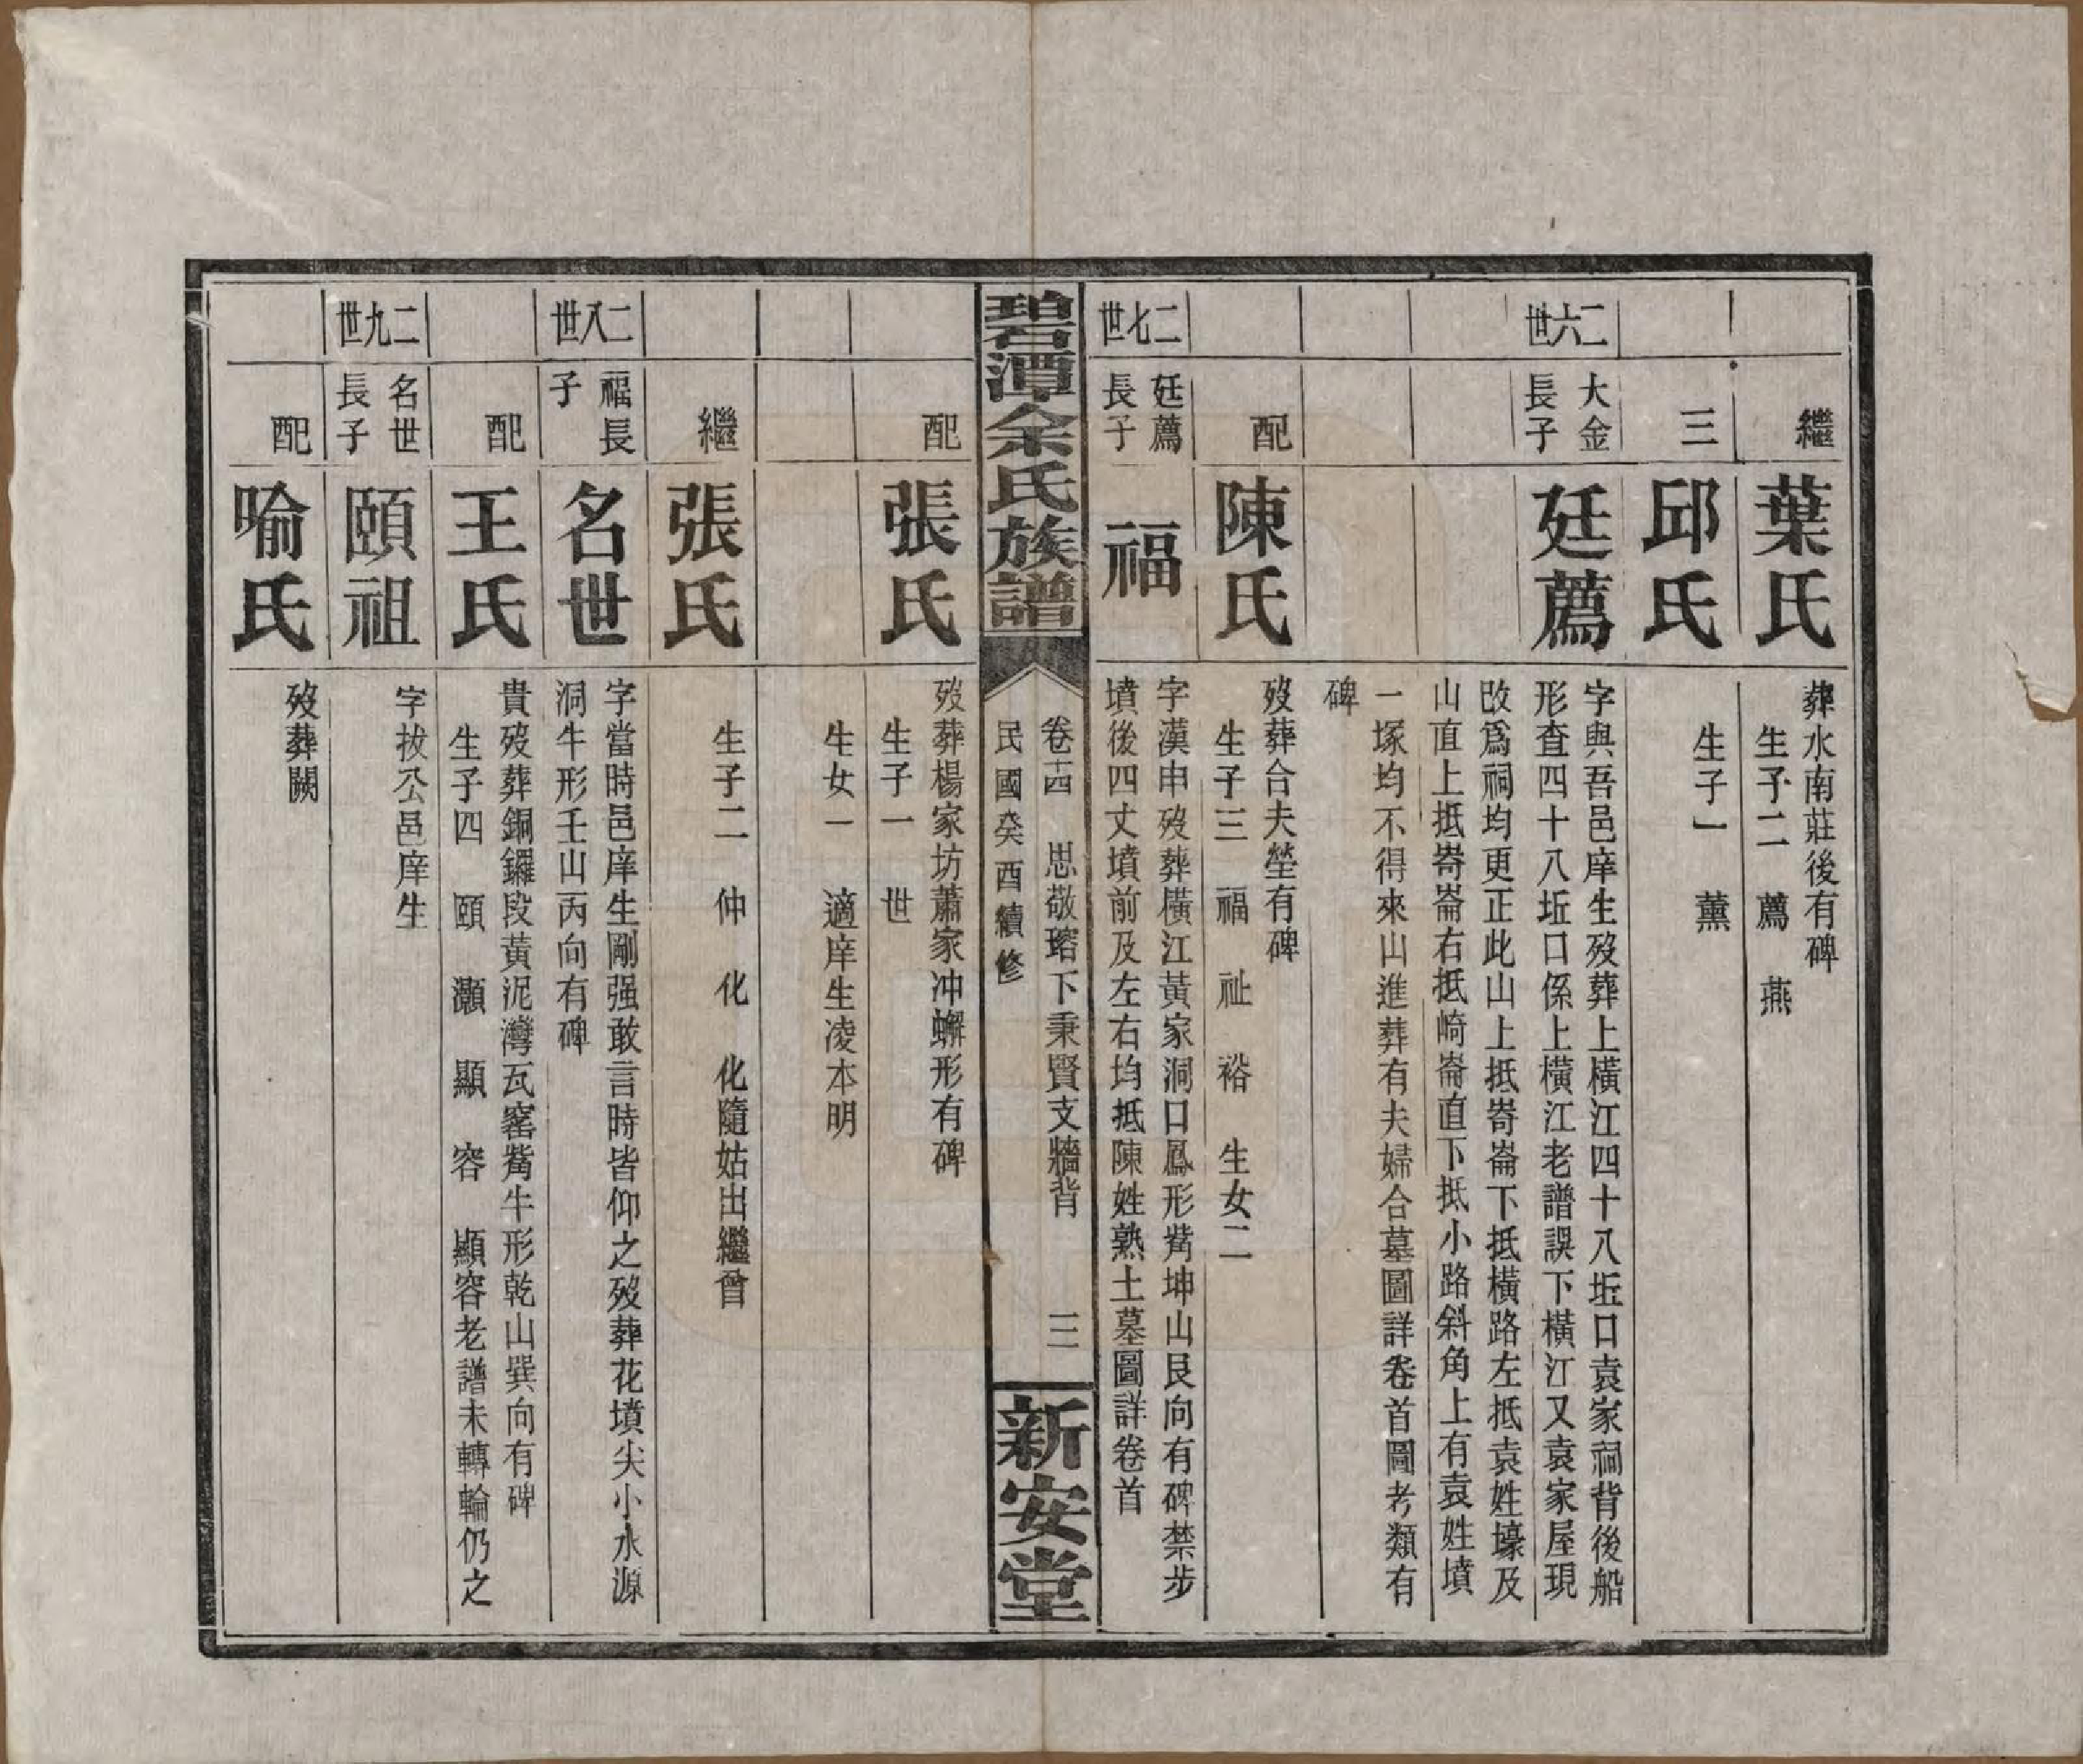 繼
葉氏
葬水南莊後有碑
生子二 薦 燕
三
邱氏
生子一 薰
二六世
大金
長子
廷薦
字與吾邑庠生歿葬上橫江四十八坵口袁家祠背後船
形查四十八坵口係上橫江老譜誤下橫江又袁家屋現
改爲祠均更正此山上抵嵜崙下抵橫路左抵袁姓壕及
山直上抵嵜崙右抵崎崙直下抵小路斜角上有袁姓墳
一塚均不得來山進葬有夫婦合墓圖詳卷首圖考類有
碑
配
陳氏
歿葬合夫塋有碑
生子三 福 祉 裕 生女二
二七世
廷薦
長子
福
字漢申歿葬橫江黃家洞口鳳形觜坤山艮向有碑禁步
墳後四丈墳前及左右均抵陳姓熟土墓圖詳卷首
碧潭余氏族譜
卷十四 思敬瑢下秉賢支牆背 三
民國癸酉續修
新安堂
配
張氏
歿葬楊家坊蕭家冲蠏形有碑
生子一 世
生女一 適庠生凌本明
繼
張氏
生子二 仲 化 化隨姑出繼曾
二八世
福長
子
名世
字當時邑庠生剛强敢言時皆仰之歿葬花墳尖小水源
洞牛形壬山丙向有碑
配
王氏
貴歿葬銅鑼段黃泥灣瓦窰觜牛形乾山巽向有碑
生子四 頤 灝 顯 容 顯容老譜未轉輪仍之
二九世
名世
長子
頤祖
字拔公邑庠生
配
喻氏
歿葬闕